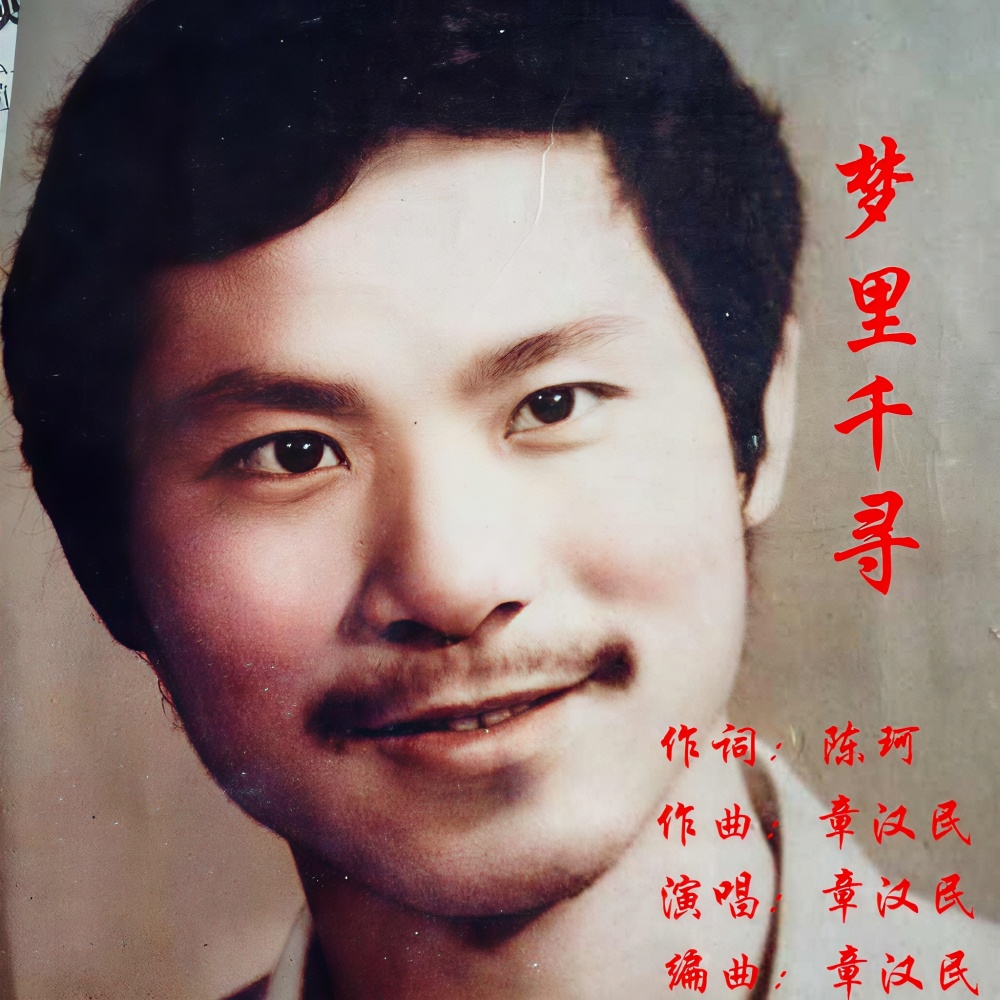 梦里千寻
作词：陈珂
作曲：章汉民
演唱：章汉民
编曲：章汉民